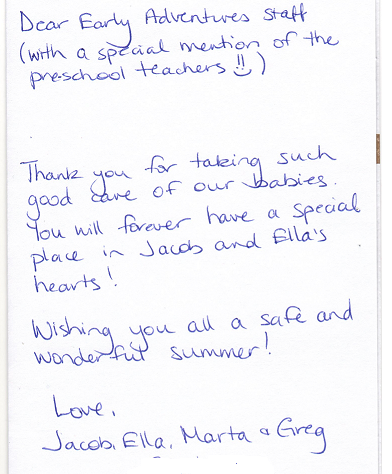 Dear Early Adventures staff
(with a special mention of the
preschool teachers!! )
Thank you for taking such
good care of our babies.
You will forever have a special
place in Jacob and Ella's
hearts!
Wishing you all a safe and
wonderful summer!
Love,
Jacob, Ella, Marta & Greg